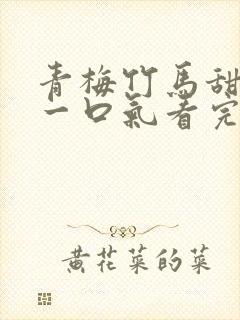 青梅竹馬甜
一口氣看完
黄花菜的菜